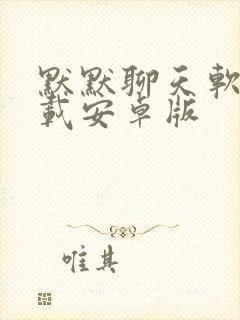 默默聊天軟
載安卓版
唯其